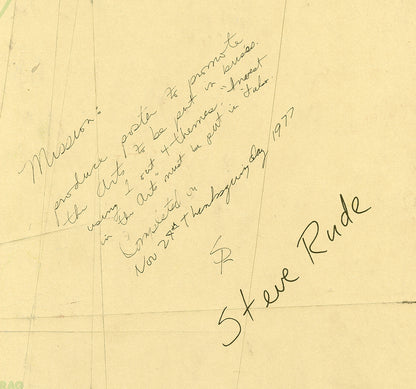 Mission:
produce poster to promote
the Arts, to be put in busses.
using 1 out 4 themes. "Invest
in the Arts must be put in it also.
Completed on
Nov 24th Thanksgiving day 1977
SR
Steve Rude